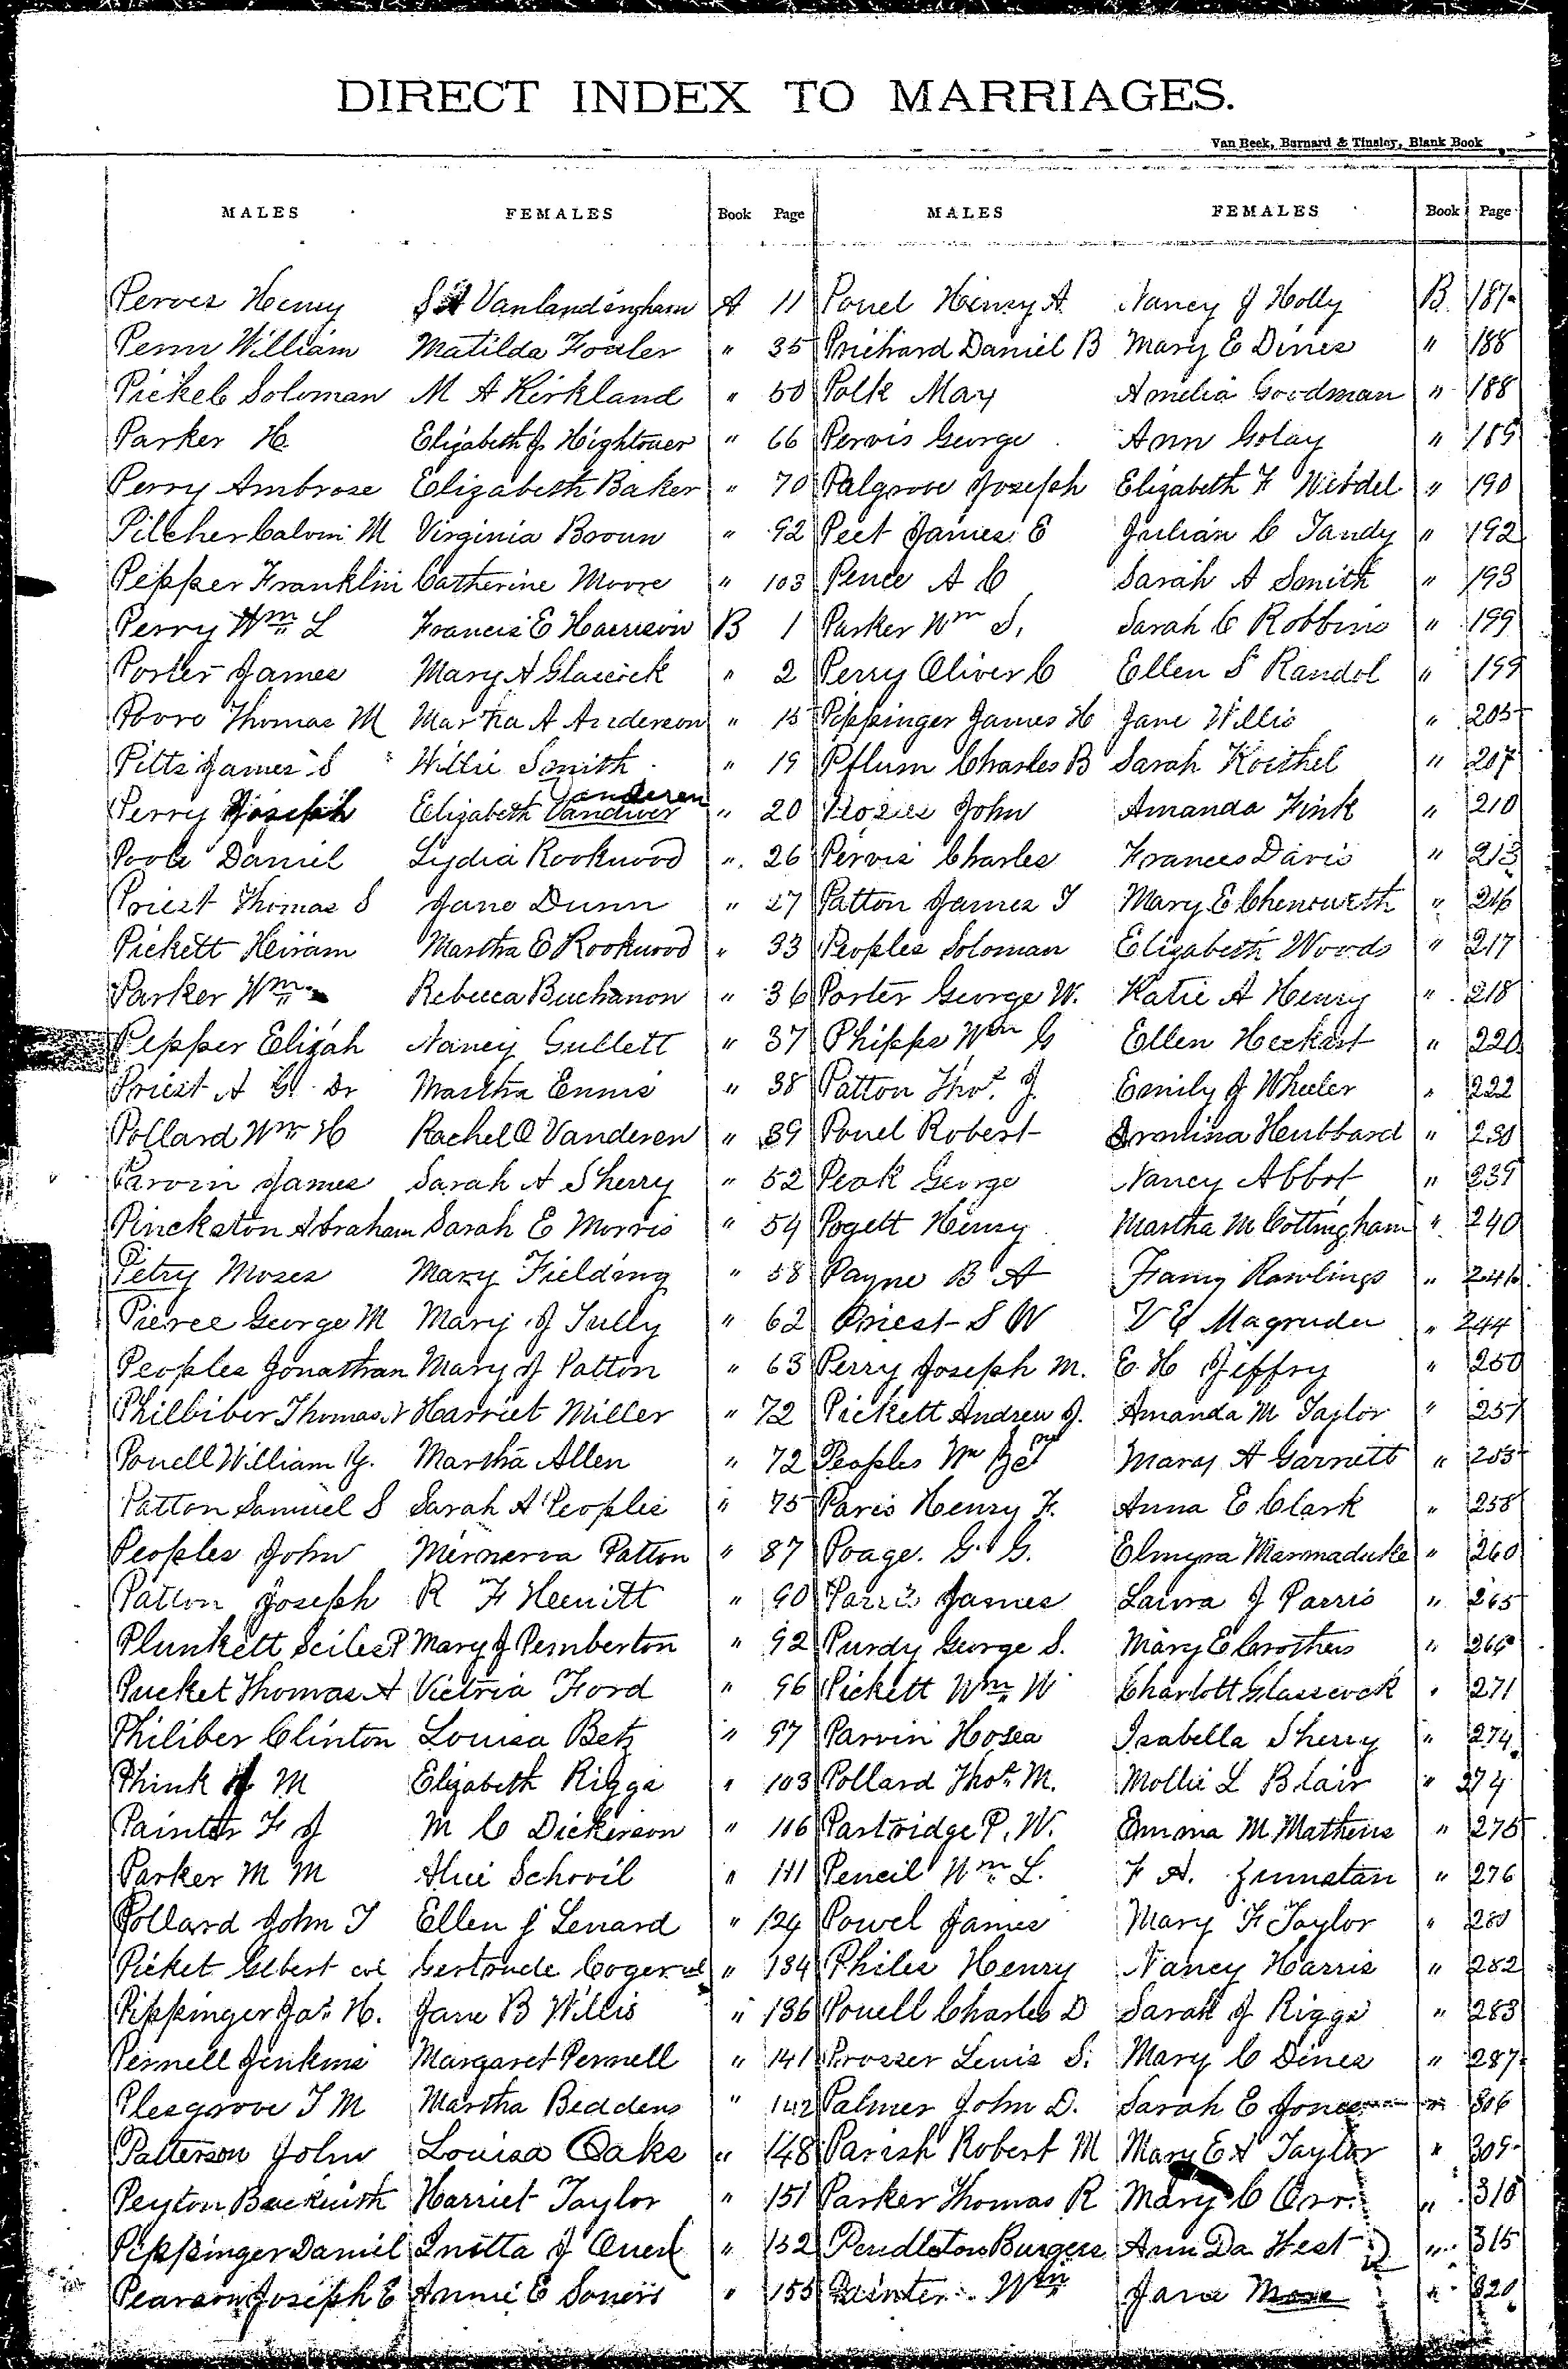 DIRECT INDEX TO MARRIAGES.
Van Beek, Barnard & Tinsley, Blank Book
MALES FEMALES Book Page MALES FEMALES Book Page
Perves Henry S A Vanlandingham A 11 Powel Henry A. Nancy J Holly B. 187
Penn William Matilda Fowler " 35 Prichard Daniel B Mary E Dines " 188
Pickel Soloman M A Kirkland " 50 Polk May Amelia Goodman " 188
Parker H. Elizabeth J. Hightower " 66 Pervis George Ann Golay " 189
Perry Ambrose Elizabeth Baker " 70 Palgrove Joseph Elizabeth F " 190
Pilcher Calvin M Virginia Brown " 92 Peet James E Julian C Tandy " 192
Pepper Franklin Catherine Moore " 103 Pence A C Sarah A Smith " 193
Perry Wm L Francis E Harrison B 1 Parker Wm S. Sarah C Robbins " 199
Porter James Mary A Glascock " 2 Perry Oliver C Ellen S Randol " 199
Poore Thomas M Martha A Anderson " 15 Pippinger James H Jane Willis " 205
Pitts James S Willie Smith " 19 Pflum Charles B Sarah Koethel " 207
Perry Joseph Elizabeth Vandiver Vanderen " 20 John Amanda Fink " 210
Poole Daniel Lydia Rookwood " 26 Pervis Charles Frances Davis " 213
Priest Thomas S Jane Dunn " 27 Patton James T Mary E Chenoweth " 216
Pickett Heiram Martha E Rookwood " 33 Peoples Soloman Elizabeth Woods " 217
Parker Wm Rebecca Buchanon " 36 Porter George W. Katie A Henry " 218
Pepper Elijah Nancy Gullett " 37 Phipps Wm G Ellen Heckart " 220
Priest A G Dr Martha Ennis " 38 Patton Thos. J. Emily J Wheeler " 222
Pollard Wm H Rachel O Vanderen " 39 Powel Robert Hubbard " 230
Parvin James Sarah A Sherry " 52 Peak George Nancy Abbot " 239
Pinckston Abraham Sarah E Morris " 54 Pogett Henry Martha M Cottingham " 240
Petry Moses Mary Fielding " 58 Payne B A Fanny Rawlings "
Pierce George M Mary J Tully " 62 Priest S W V E Magruder " 244
Peoples Jonathan Mary J Patton " 63 Perry Joseph M. E H Jeffry " 250
Philbiber Thomas Harriet Miller " 72 Pickett Andrew J. Amanda M Taylor " 257
Powell William Y. Martha Allen " 72 Peoples Wm Mary A Garnett "
Patton Samuel S Sarah A Peoples " 75 Paris Henry F. Anna E Clark " 258
Peoples John Minerva Patton " 87 Poage. G. G. Elmyra Marmaduke " 260
Patton Joseph R F Hewitt " 90 Parris James Laura J Parris " 265
Plunkett P Mary J Pemberton " 92 Purdy George S. Mary E Crothers "
Pucket Thomas A Victria Ford " 96 Pickett Wm W Charlott Glasscock " 271
Philiber Clinton Louisa Betz " 97 Parvin Hosea Isabella Sherry " 274
Phink M Elizabeth Riggs " 103 Pollard Thos. M. Mollie L Blair " 274
Painter F J M C Dickerson " 106 Partridge P. W. Emma M. Mathews " 275
Parker M M " 111 Pencil Wm L. F A. " 276
Pollard John T Ellen J Lenard " 124 Powel James Mary F Taylor " 280
Picket Gilbert col Gertrude Coger col " 134 Philes Henry Nancy Harris " 282
Pippinger Jas. H. Jane B Willis " 136 Powell Charles D Sarah J Riggs " 283
Pernell Jenkins Margaret Pernell " 141 Prosser Lewis S. Mary C Dines " 287
Plesgrove T M Martha Beddens " 142 Palmer John D. Sarah E Jones " 306
Patterson John Louisa Oaks " 148 Parish Robert M Mary E A Taylor " 309
Peyton Harriet Taylor " 151 Parker Thomas R Mary C Orr. " 310
Pippinger Daniel J " 152 Pendleton Burgess Ann Da West " 315
Pearson Joseph E Annie E " 155 Wm Jane " 320